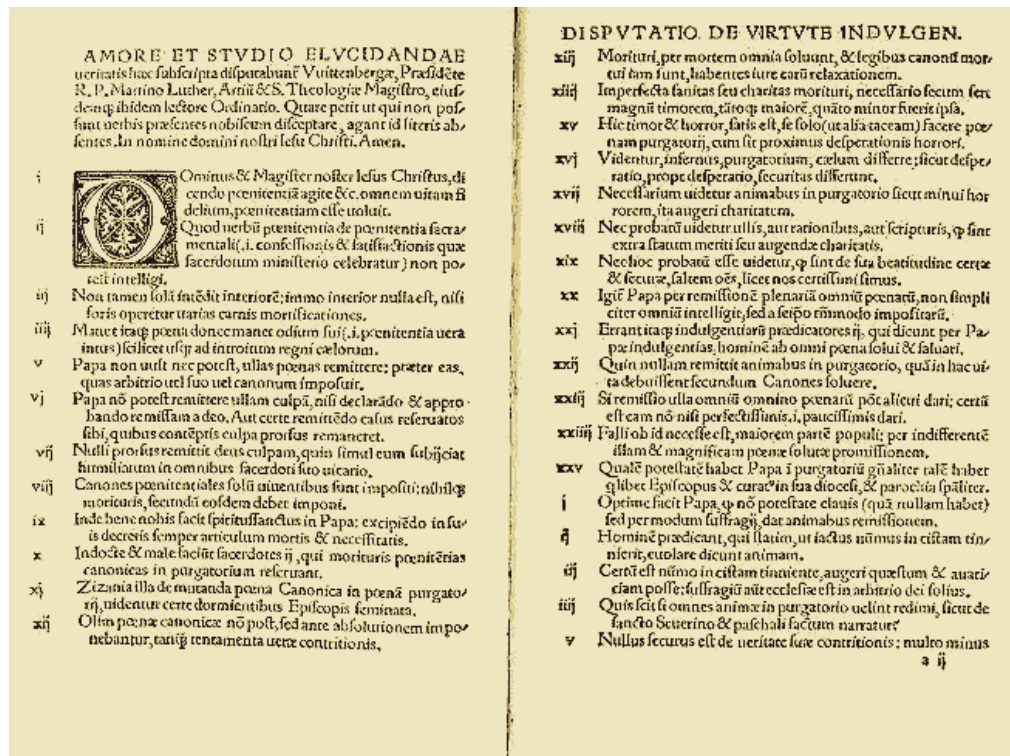 AMORE ET STVDIO ELVCIDANDAE
ueritatis hæc subscripta disputabunt̃ Vuittenbergæ, Præsidẽte
R. P. Martino Luther, Artiũ & S. Theologiæ Magistro, eius/
demq; ibidem lectore Ordinatio. Quare petit ut qui non pos/
sunt uerbis præsentes nobiscum disceptare, agant id literis ab/
sentes. In nomine domini nostri Iesu Christi. Amen.
i DOminus & Magister noster Iesus Christus, di
cendo pœnitentiã agite &c. omnem uitam fi
delium, pœnitentiam esse uoluit.
ij Quod uerbũ pœnitentia de pœnitentia sacra/
mentali (.i. confessionis & satisfactionis quæ
sacerdotum ministerio celebratur) non po/
test intelligi.
iij Non tamen solã intẽdit interiorẽ: immo interior nulla est, nisi
foris operetur uarias carnis mortificationes.
iiij Manet itaq; pœna donec manet odium sui (.i. pœnitentia uera
intus) scilicet usq; ad introitum regni cælorum.
v Papa non uult nec potest, ullas pœnas remittere: præter eas,
quas arbitrio uel suo uel canonum imposuit.
vj Papa nõ potest remittere ullam culpã, nisi declarãdo & appro/
bando remissam a deo. Aut certe remittẽdo casus reseruatos
sibi, quibus contẽptis culpa prorsus remaneret.
vij Nulli prorsus remittit deus culpam, quin simul eum subijciat
humiliatum in omnibus sacerdoti suo uicario.
viij Canones pœnitentiales solũ uiuentibus sunt impositi: nihilq;
morituris, secundũ eosdem debet imponi.
ix Inde bene nobis facit spiritussanctus in Papa: excipiẽdo in su/
is decretis semper articulum mortis & necessitatis.
x Indocte & male faciũt sacerdotes ij, qui morituris pœnitẽtias
canonicas in purgatorium reseruant.
xj Zizania illa de mutanda pœna Canonica in pœnã purgato/
rij, uidentur certe dormientibus Episcopis seminata.
xij Olim pœnæ canonicæ nõ post, sed ante absolutionem impo/
nebantur, tanq̃ tentamenta ueræ contritionis.
DISPVTATIO DE VIRTVTE INDVLGEN.
xiij Morituri, per mortem omnia soluunt, & legibus canonũ mor/
tui iam sunt, habentes iure earũ relaxationem.
xiiij Imperfecta sanitas seu charitas morituri, necessario secum fert
magnũ timorem, tãtoq; maiorẽ, quãto minor fuerit ipsa.
xv Hic timor & horror, satis est, se solo (ut alia taceam) facere pœ/
nam purgatorij, cum sit proximus desperationis horrori.
xvj Videntur, infernus, purgatorium, cælum differre: sicut despe/
ratio, prope desperatio, securitas differunt.
xvij Necessarium uidetur animabus in purgatorio sicut minui hor
rorem, ita augeri charitatem.
xviij Nec probatũ uidetur ullis, aut rationibus, aut scripturis, ꝙ sint
extra statum meriti seu augendæ charitatis.
xix Nec hoc probatũ esse uidetur, ꝙ sint de sua beatitudine certæ
& securæ, saltem oẽs, licet nos certissimi simus.
xx Igit̃ Papa per remissionẽ plenariã omniũ pœnarũ, non simpli
citer omniũ intelligit, sed a seipo tm̃modo impositarũ.
xxj Errant itaq; indulgentiarũ prædicatores ij, qui dicunt per Pa/
pæ indulgentias, hominẽ ab omni pœna solui & saluari.
xxij Quin nullam remittit animabus in purgatorio, quã in hac ui/
ta debuissent secundum Canones soluere.
xxiij Si remissio ulla omniũ omnino pœnarũ põt alicui dari: certũ
est eam nõ nisi perfectissimis, i. paucissimis dari.
xxiiij Falli ob id necesse est, maiorem partẽ populi; per indifferentẽ
illam & magnificam pœnæ solutæ promissionem.
xxv Qualẽ potestatẽ habet Papa ĩ purgatoriũ gñaliter talẽ habet
qlibet Episcopus & curat9 in sua diocesi, & parochia spãliter.
i Optime facit Papa, ꝙ nõ potestate clauis (quã nullam habet)
sed per modum suffragij, dat animabus remissionem.
ij Hominẽ prædicant, qui statim, ut iactus nũmus in cistam tin/
nierit, euolare dicunt animam.
iij Certũ est nũmo in cistam tinniente, augeri quæstum & auari/
ciam posse: suffragiũ aut̃ ecclesiæ est in arbitrio dei solius.
iiij Quis scit si omnes animæ in purgatorio uelint redimi, sicut de
sancto Seuerino & paschali factum narratur?
v Nullus securus est de ueritate suæ contritionis: multo minus
a ij